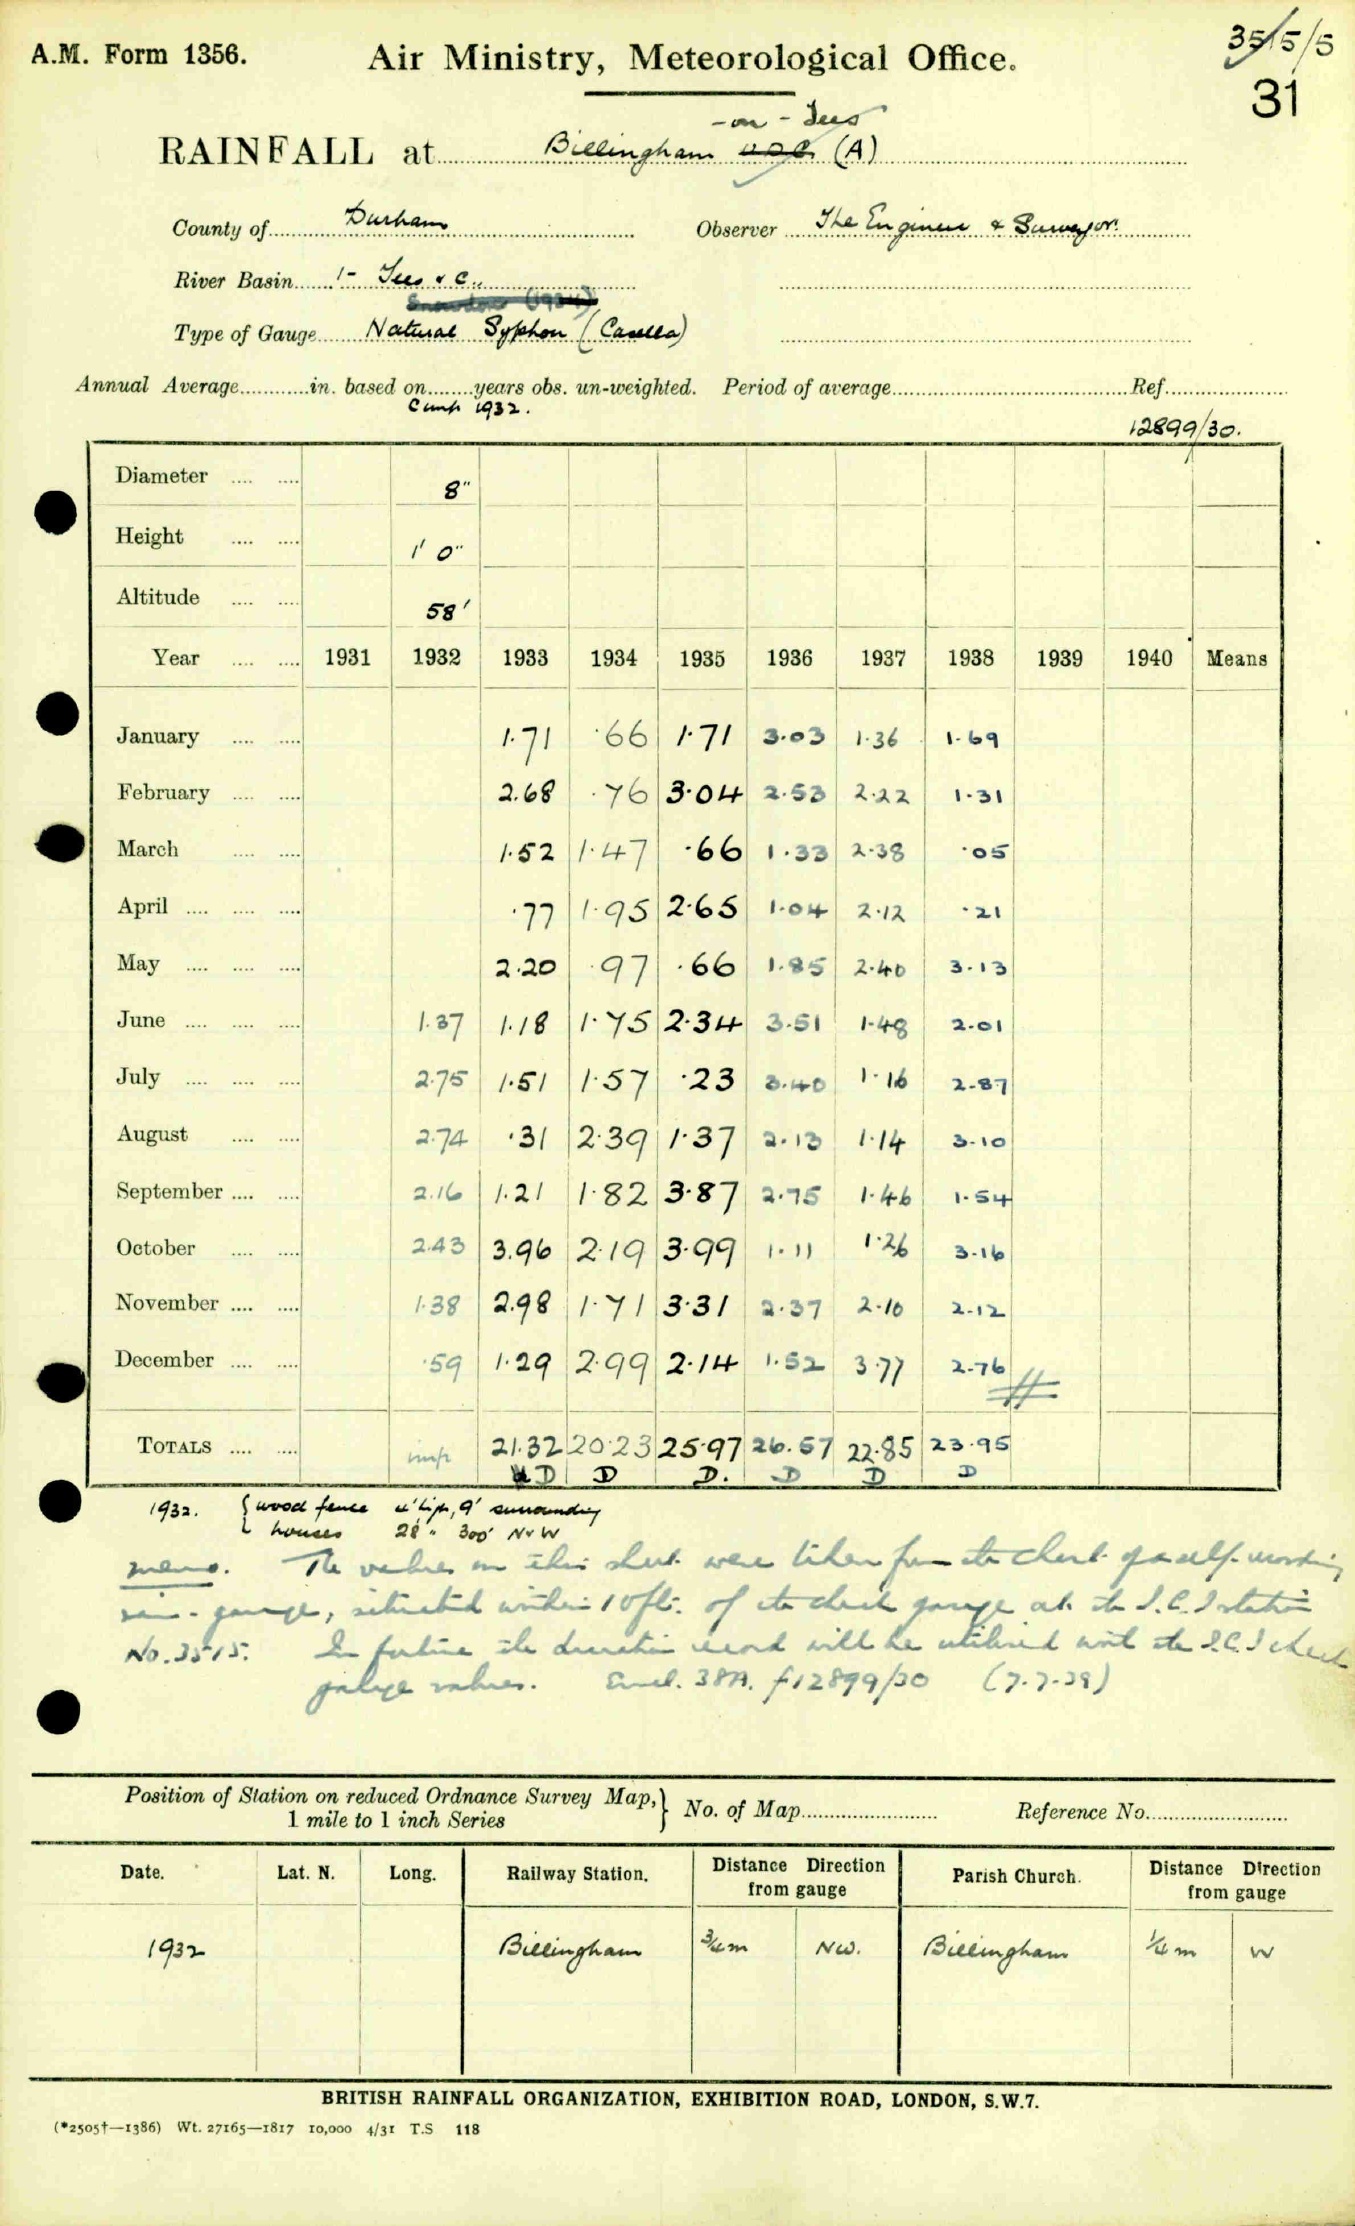 A.M. Form 1356. Air Ministry, Meteorological Office. 3515/5
31
-on-Tees
RAINFALL at Billingham (A)
County of Durham Observer The Engineer & Surveyor.
River Basin 1- Tees &c.
Snowdon (1934)
Type of Gauge Natural Syphon (Casella)
Annual Average in. based on years obs. un-weighted. Period of average Ref.
Comp 1932. 12899/30.
Diameter 8"
Height 1' 0"
Altitude 58'
Year 1931 1932 1933 1934 1935 1936 1937 1938 1939 1940 Means
January 1.71 .66 1.71 3.03 1.36 1.69
February 2.68 .76 3.04 2.53 2.22 1.31
March 1.52 1.47 .66 1.33 2.38 .05
April .77 1.95 2.65 1.04 2.12 .21
May 2.20 .97 .66 1.85 2.40 3.13
June 1.37 1.18 1.75 2.34 3.51 1.48 2.01
July 2.75 1.51 1.57 .23 3.40 1.16 2.87
August 2.74 .31 2.39 1.37 2.13 1.14 3.10
September 2.16 1.21 1.82 3.87 2.75 1.46 1.54
October 2.43 3.96 2.19 3.99 1.11 1.26 3.16
November 1.38 2.98 1.71 3.31 2.37 2.10 2.12
December .59 1.29 2.99 2.14 1.52 3.77 2.76
TOTALS imp 21.32 20.23 25.97 26.57 22.85 23.95
D D D. D D D
1932. { wood fence 4' high, 9' surrounding
houses 28" 300' N & W
memo. The values on this sheet were taken from the chart of a self-recording
rain-gauge, situated within 10ft. of the check gauge at the I.C.I station
No. 3515. In future the duration record will be utilised with the I.C.I check
gauge values. Encl. 38A. f12899/30 (7.7.39)
Position of Station on reduced Ordnance Survey Map,} No. of Map Reference No.
1 mile to 1 inch Series
Date. Lat. N. Long. Railway Station. Distance Direction from gauge Parish Church. Distance Direction from gauge
1932 Billingham 3/4 m NW. Billingham 1/4 m W
BRITISH RAINFALL ORGANIZATION, EXHIBITION ROAD, LONDON, S.W.7.
(*2505†—1386) Wt. 27165—1817 10,000 4/31 T.S 118